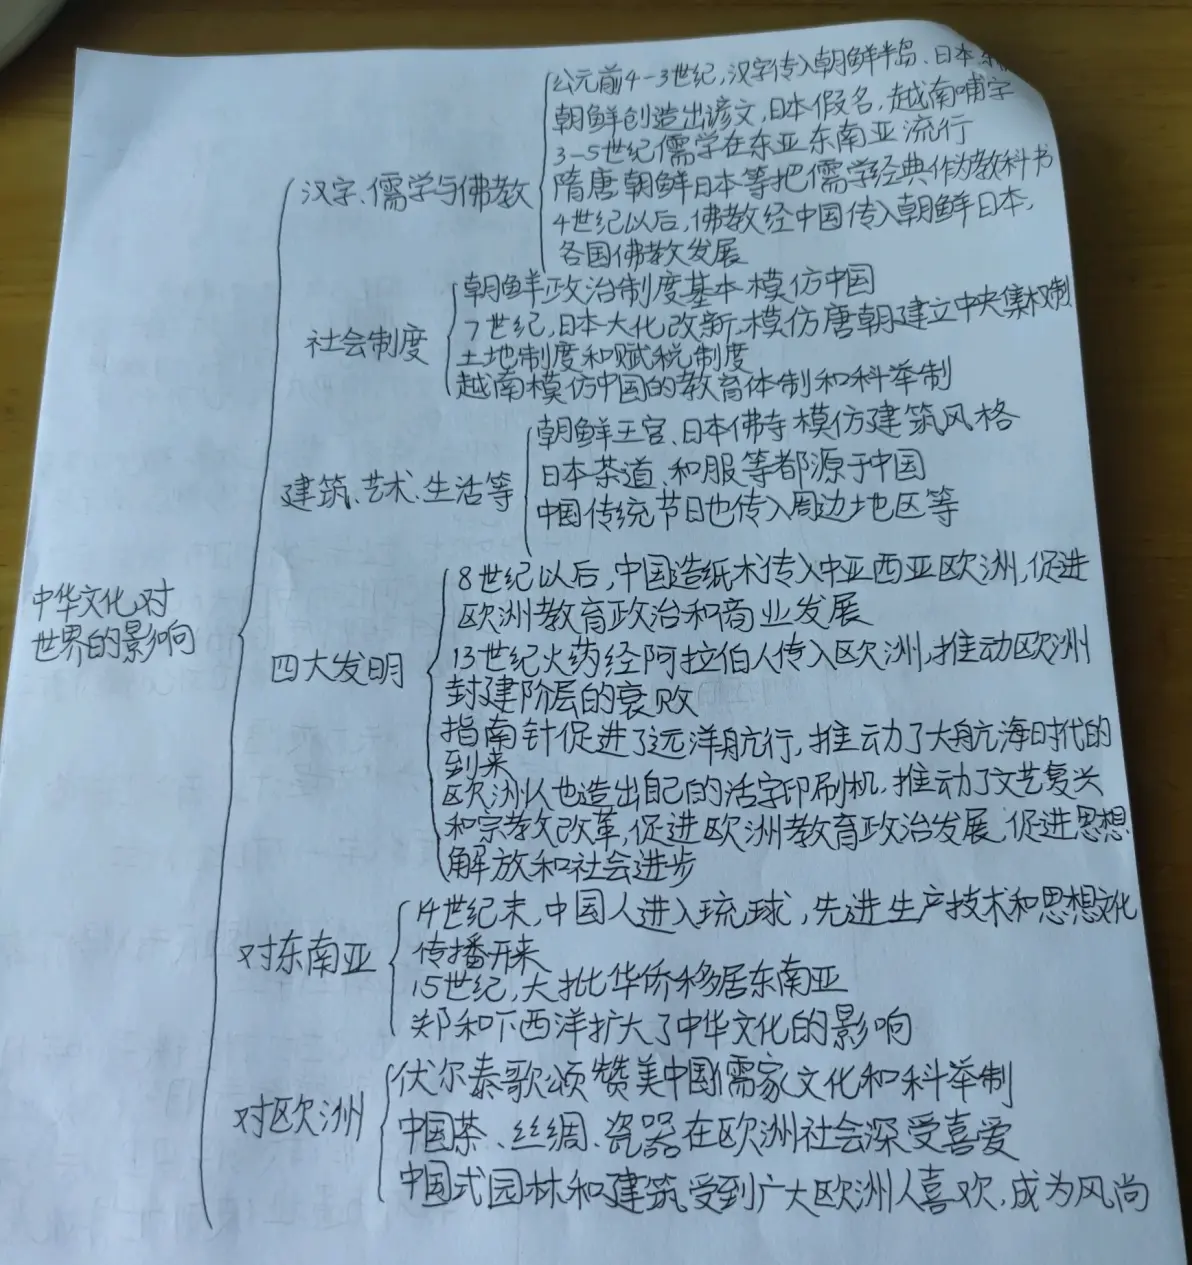 中华文化对
世界的影响
汉字、儒学与佛教
公元前4-3世纪,汉字传入朝鲜半岛、日本、
朝鲜创造出谚文,日本假名,越南喃字
3-5世纪儒学在东亚东南亚流行
隋唐朝鲜日本等把儒学经典作为教科书
4世纪以后,佛教经中国传入朝鲜日本,
各国佛教发展
社会制度
朝鲜政治制度基本模仿中国
7世纪,日本大化改新,模仿唐朝建立中央集权制
土地制度和赋税制度
越南模仿中国的教育体制和科举制
建筑、艺术、生活等
朝鲜王宫、日本佛寺模仿建筑风格
日本茶道、和服等都源于中国
中国传统节日也传入周边地区等
四大发明
8世纪以后,中国造纸术传入中亚西亚欧洲,促进
欧洲教育政治和商业发展
13世纪火药经阿拉伯人传入欧洲,推动欧洲
封建阶层的衰败
指南针促进了远洋航行,推动了大航海时代的
到来
欧洲人也造出自己的活字印刷机,推动了文艺复兴
和宗教改革,促进欧洲教育政治发展,促进思想
解放和社会进步
对东南亚
14世纪末,中国人进入琉球,先进生产技术和思想文化
传播开来
15世纪,大批华侨移居东南亚
郑和下西洋扩大了中华文化的影响
对欧洲
伏尔泰歌颂赞美中国儒家文化和科举制
中国茶、丝绸、瓷器在欧洲社会深受喜爱
中国式园林和建筑受到广大欧洲人喜欢,成为风尚